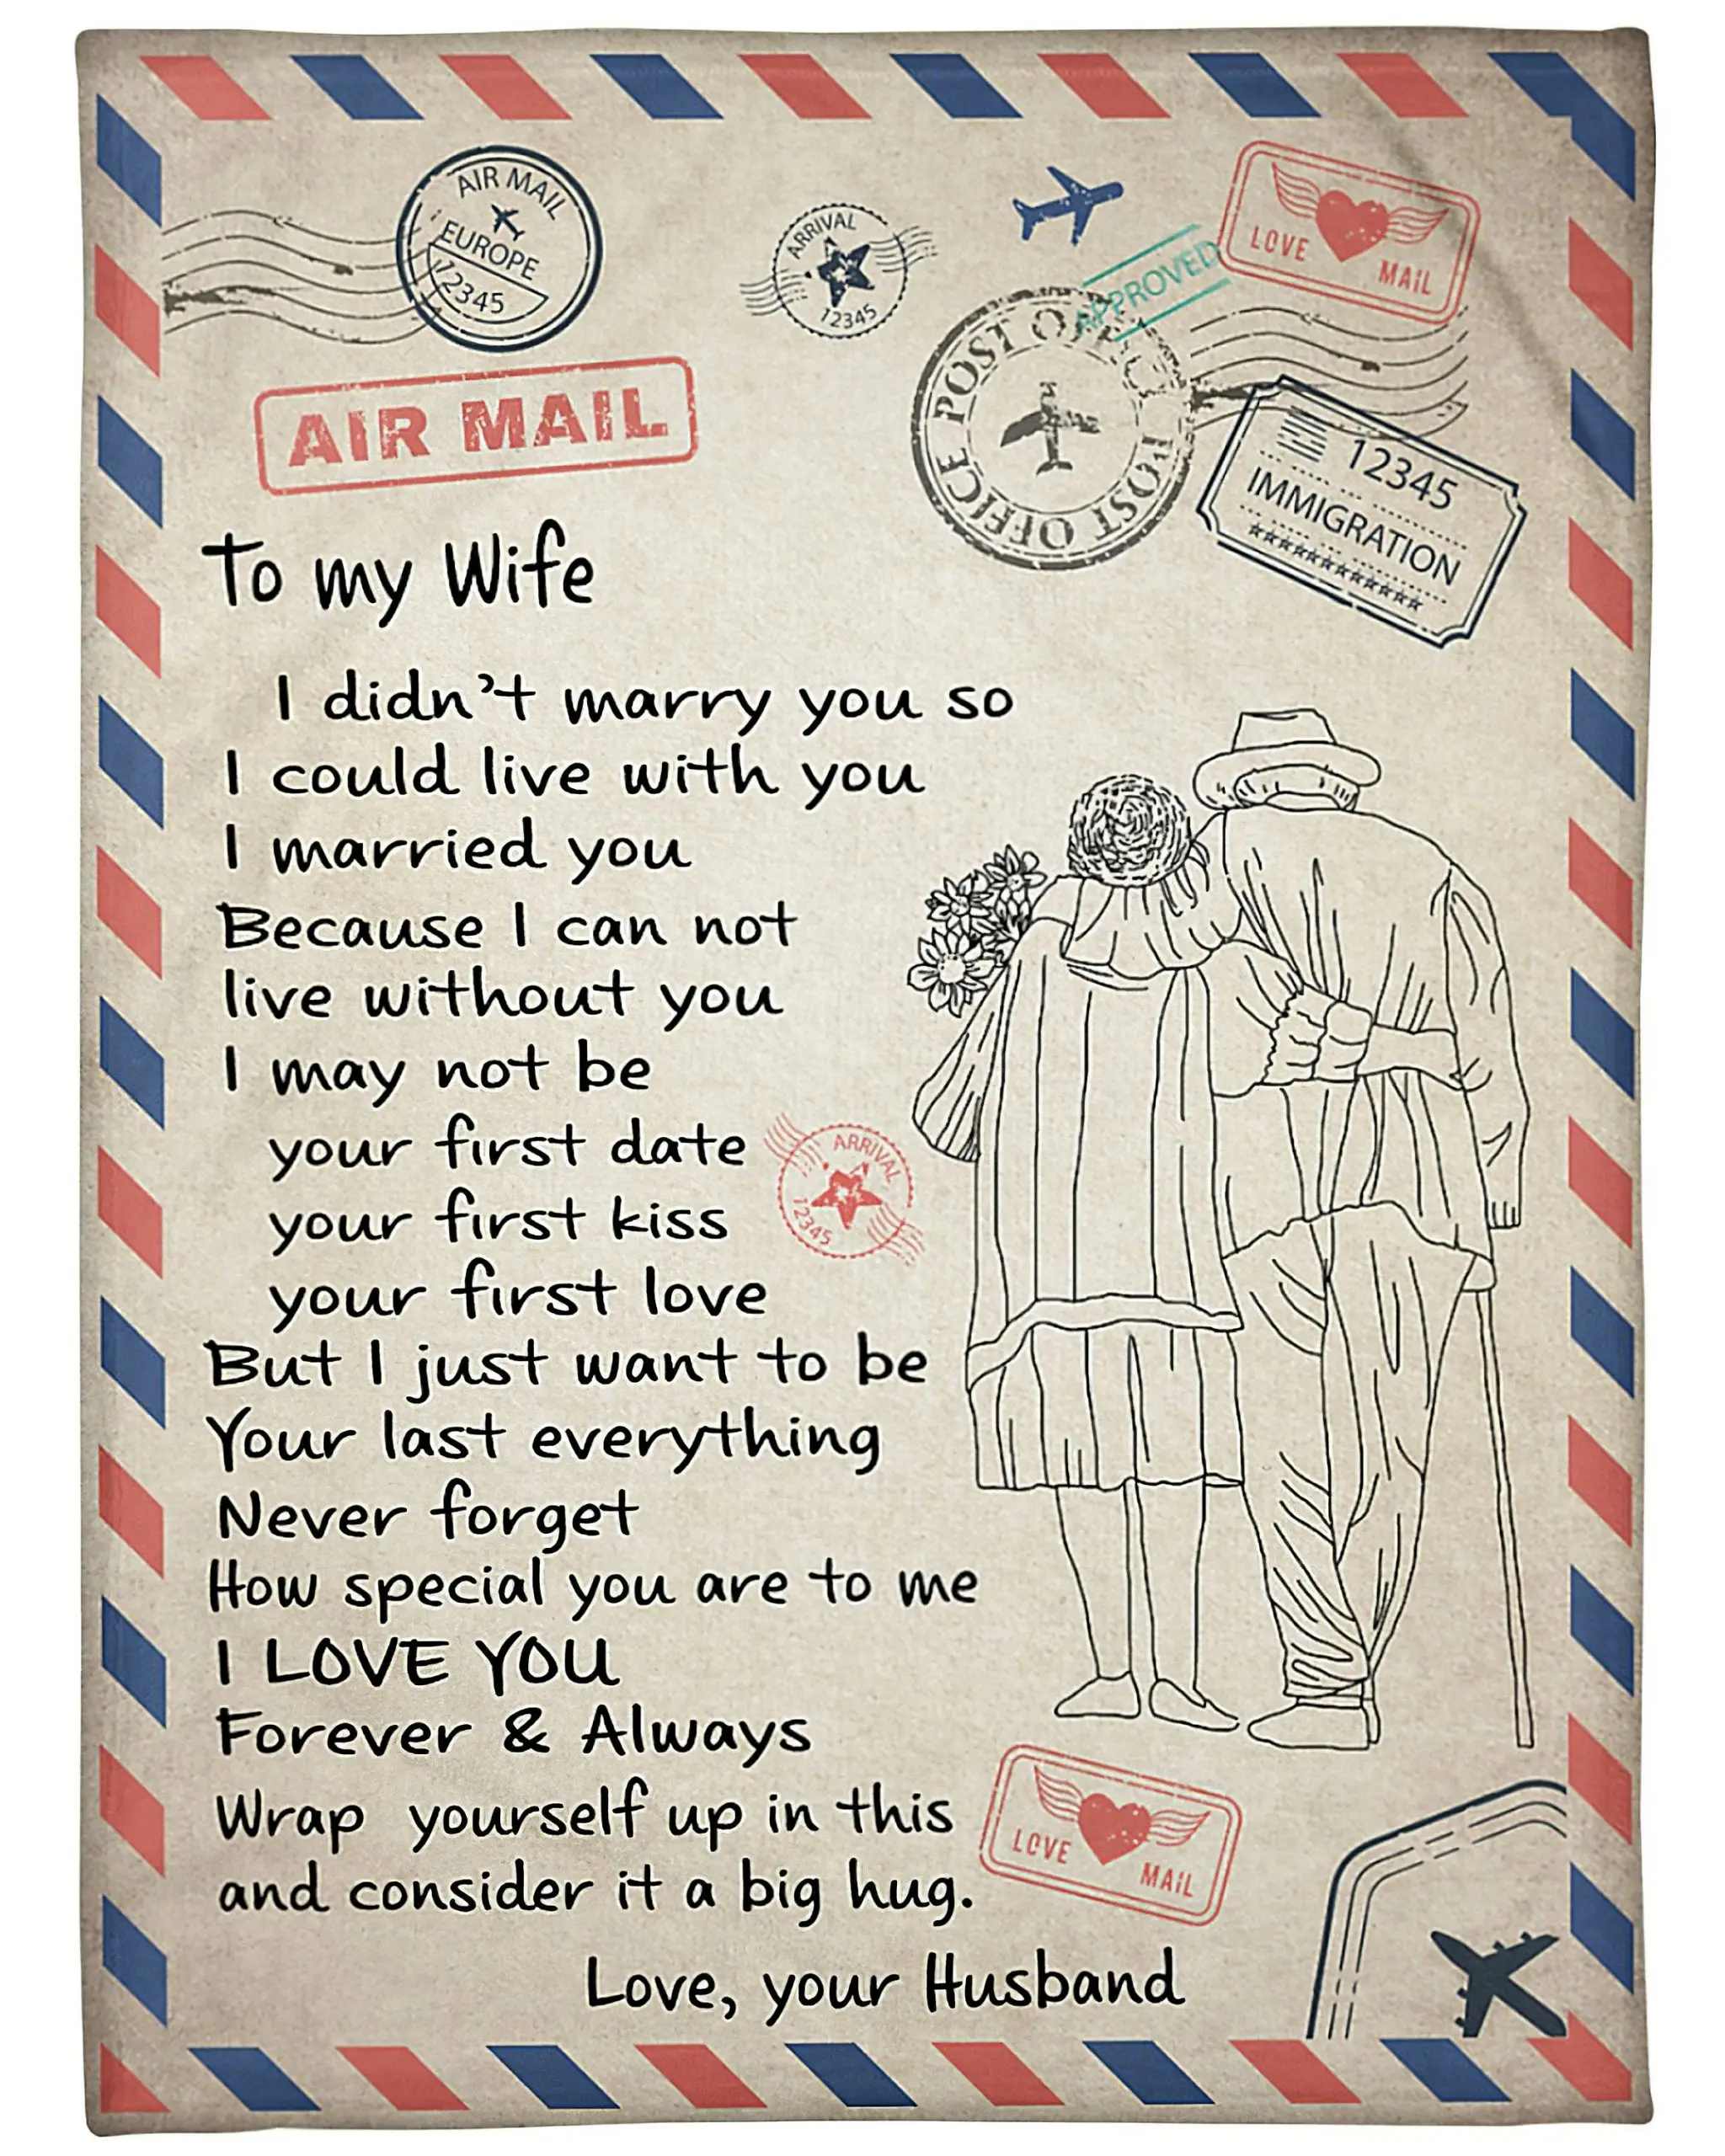 AIR MAIL
EUROPE
12345
ARRIVAL
12345
APPROVED
LOVE MAIL
POST OFFICE POST OFFICE
12345
IMMIGRATION
AIR MAIL
To my Wife
I didn't marry you so
I could live with you
I married you
Because I can not
live without you
I may not be
your first date
your first kiss
your first love
ARRIVAL
12345
But I just want to be
Your last everything
Never forget
How special you are to me
I LOVE YOU
Forever & Always
Wrap yourself up in this
and consider it a big hug.
LOVE MAIL
Love, your Husband